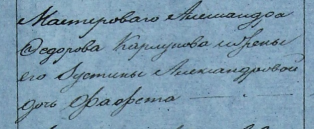 Мастероваго Александра
Ѳедорова Карпунова и жены
его Іустины Александровой
дочь